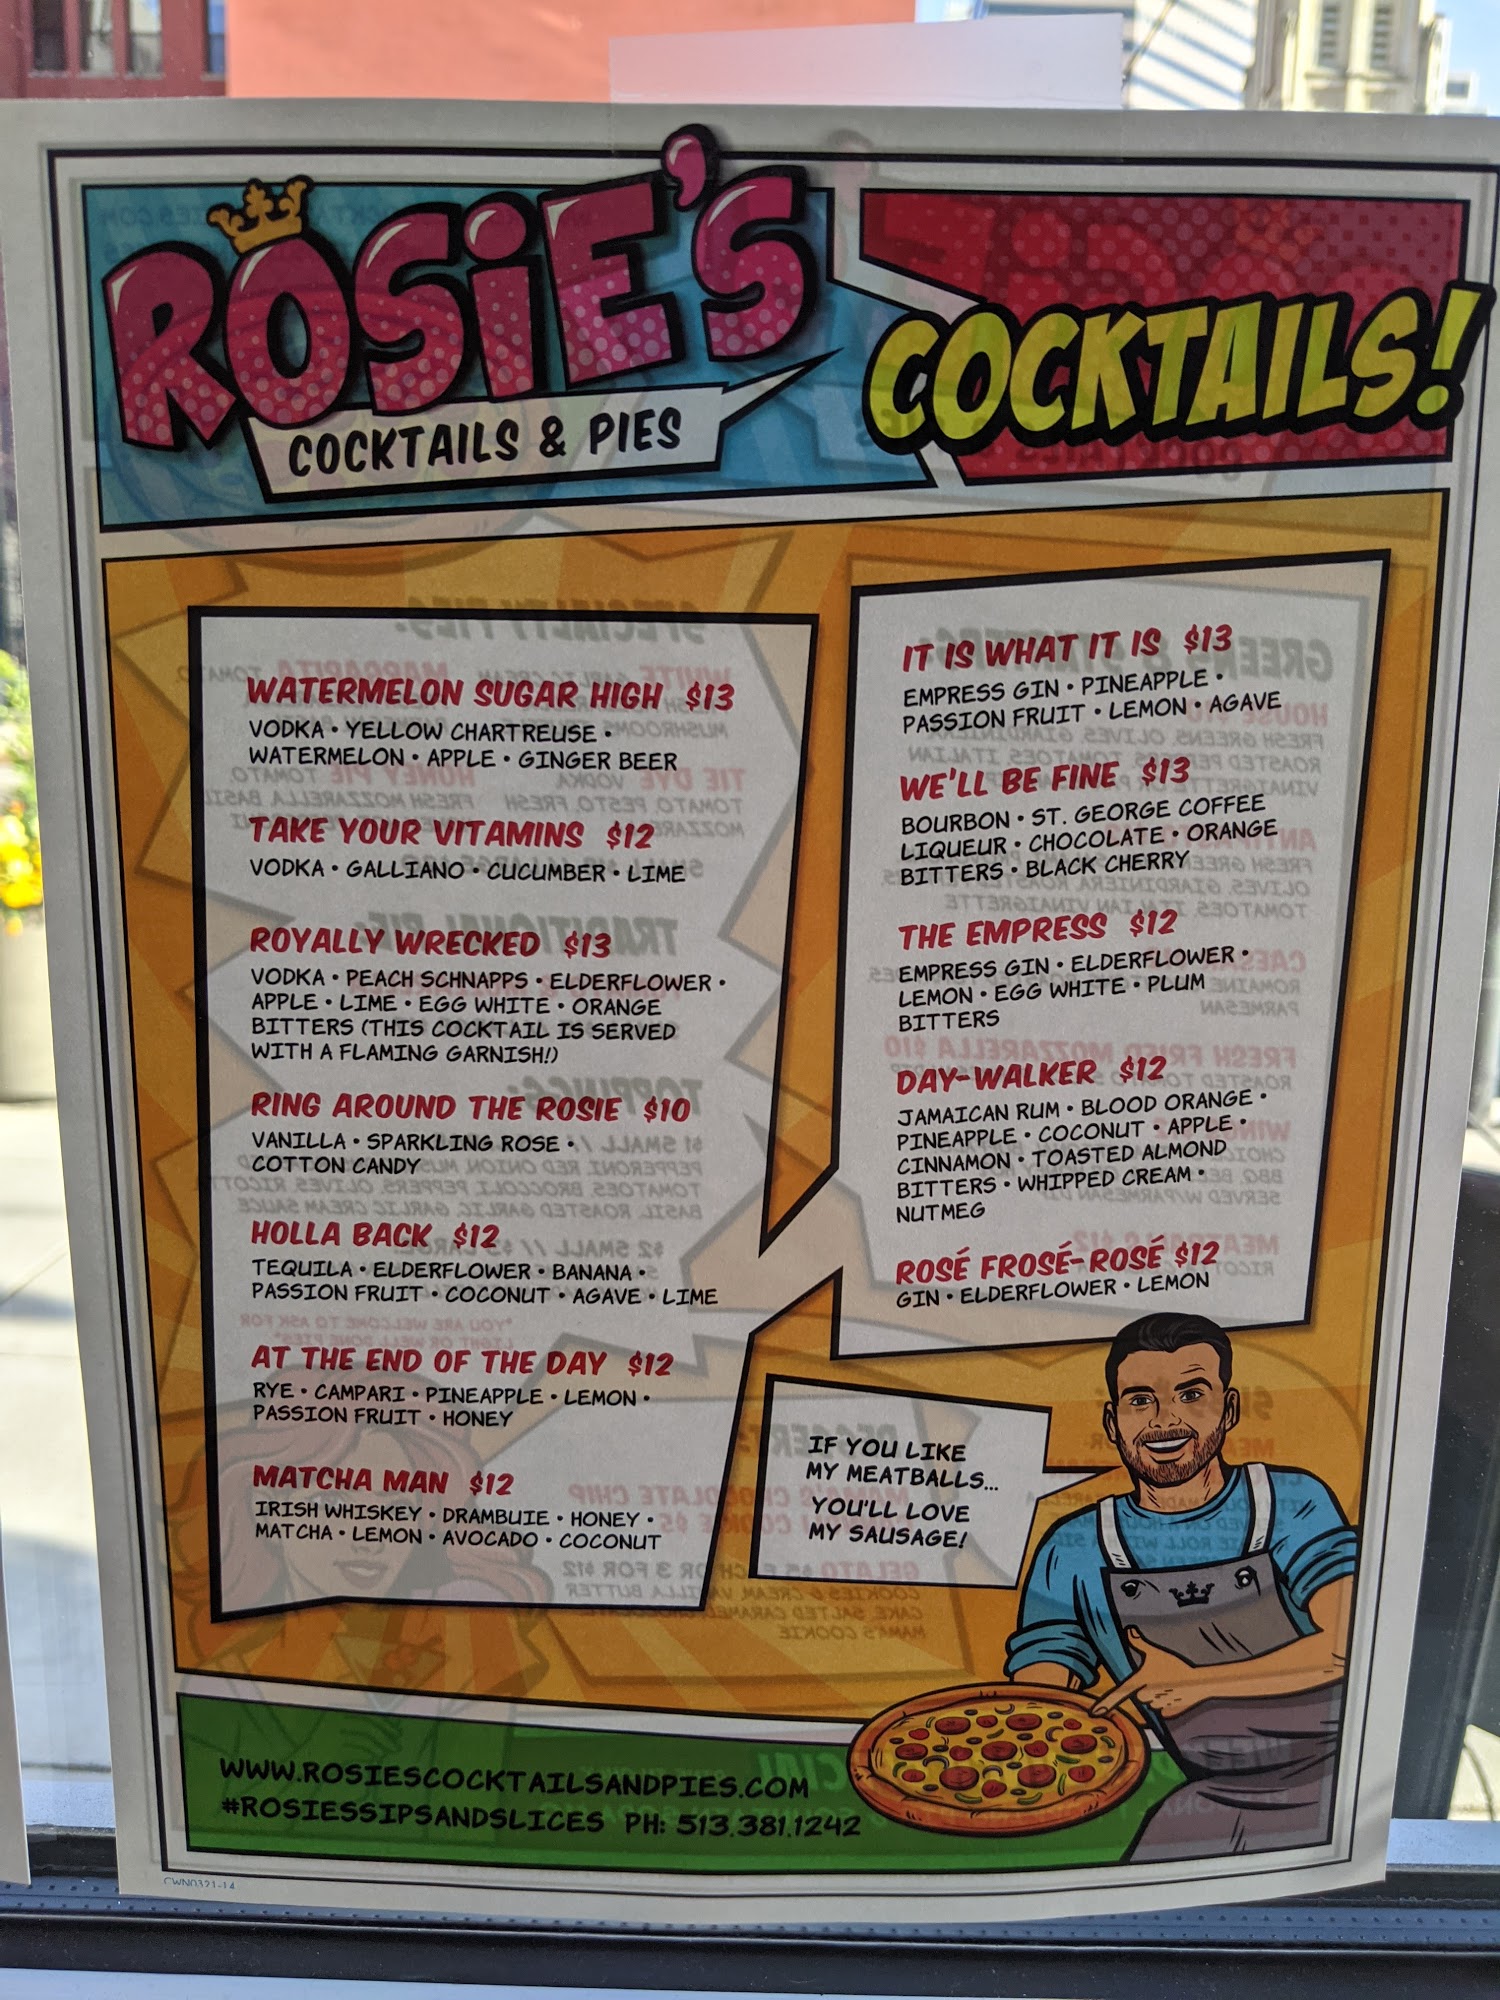 ROSIE'S
COCKTAILS & PIES
COCKTAILS!
WATERMELON SUGAR HIGH $13
VODKA • YELLOW CHARTREUSE •
WATERMELON • APPLE • GINGER BEER
TAKE YOUR VITAMINS $12
VODKA • GALLIANO • CUCUMBER • LIME
ROYALLY WRECKED $13
VODKA • PEACH SCHNAPPS • ELDERFLOWER •
APPLE • LIME • EGG WHITE • ORANGE
BITTERS (THIS COCKTAIL IS SERVED
WITH A FLAMING GARNISH!)
RING AROUND THE ROSIE $10
VANILLA • SPARKLING ROSE •
COTTON CANDY
HOLLA BACK $12
TEQUILA • ELDERFLOWER • BANANA •
PASSION FRUIT • COCONUT • AGAVE • LIME
AT THE END OF THE DAY $12
RYE • CAMPARI • PINEAPPLE • LEMON •
PASSION FRUIT • HONEY
MATCHA MAN $12
IRISH WHISKEY • DRAMBUIE • HONEY •
MATCHA • LEMON • AVOCADO • COCONUT
IT IS WHAT IT IS $13
EMPRESS GIN • PINEAPPLE •
PASSION FRUIT • LEMON • AGAVE
WE'LL BE FINE $13
BOURBON • ST. GEORGE COFFEE
LIQUEUR • CHOCOLATE • ORANGE
BITTERS • BLACK CHERRY
THE EMPRESS $12
EMPRESS GIN • ELDERFLOWER •
LEMON • EGG WHITE • PLUM
BITTERS
DAY-WALKER $12
JAMAICAN RUM • BLOOD ORANGE •
PINEAPPLE • COCONUT • APPLE •
CINNAMON • TOASTED ALMOND
BITTERS • WHIPPED CREAM •
NUTMEG
ROSÉ FROSÉ-ROSÉ $12
GIN • ELDERFLOWER • LEMON
IF YOU LIKE
MY MEATBALLS...
YOU'LL LOVE
MY SAUSAGE!
WWW.ROSIESCOCKTAILSANDPIES.COM
#ROSIESSIPSANDSLICES PH: 513.381.1242
CWN0321-14